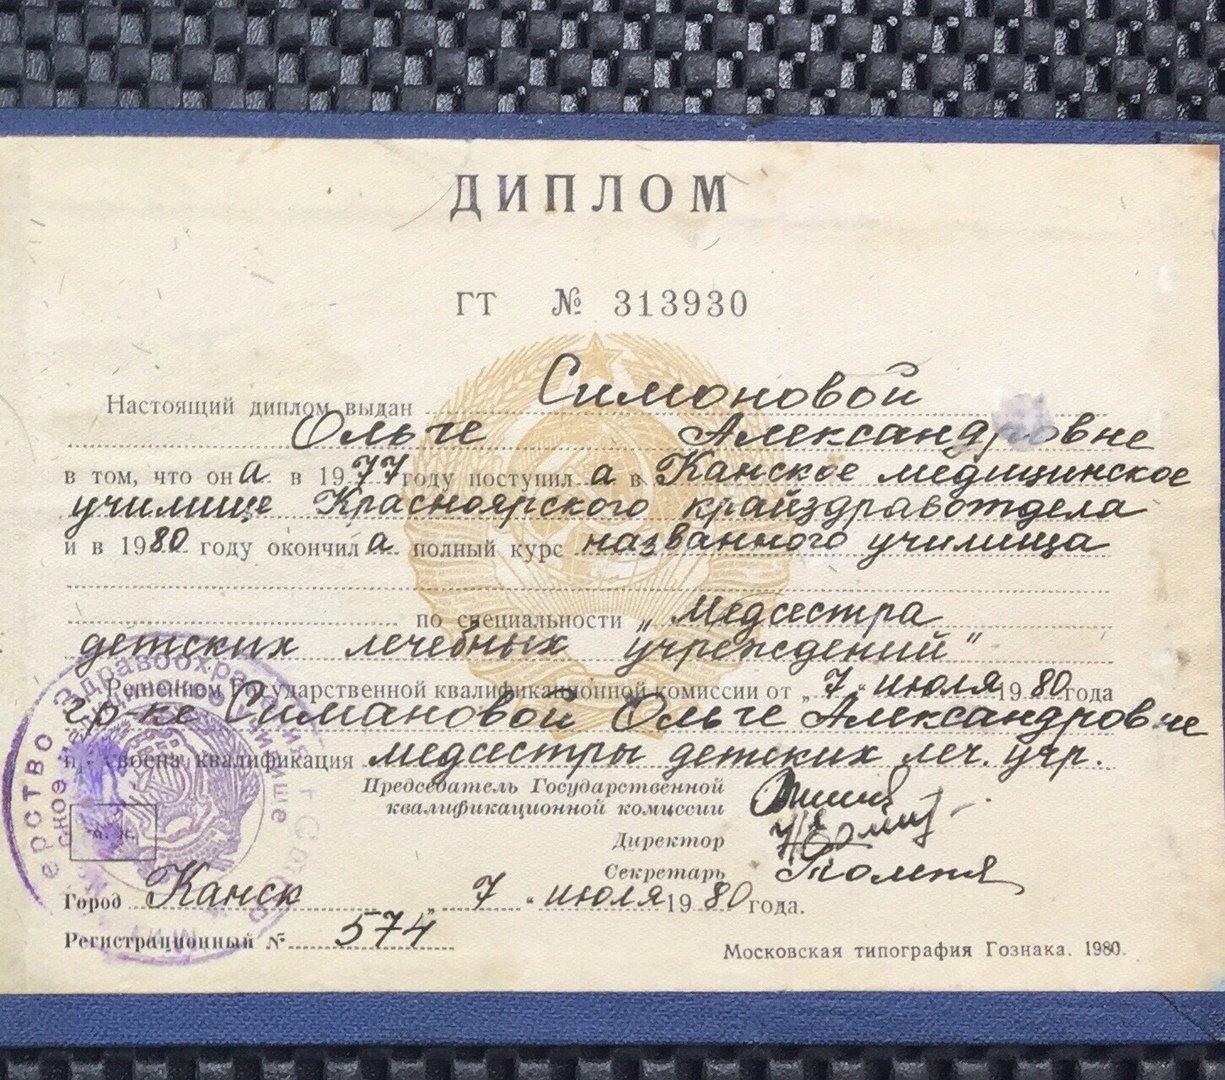 ДИПЛОМ
ГТ № 313930
Настоящий диплом выдан Симоновой
Ольге Александровне
в том, что она в 1977 году поступила в Канское медицинское
училище Красноярского крайздравотдела
и в 1980 году окончила полный курс названного училища
по специальности „Медсестра
детских лечебных учреждений"
Решением Государственной квалификационной комиссии от „7" июля 1980 года
гр-ке Симановой Ольге Александровне
присвоена квалификация медсестры детских леч. учр.
Председатель Государственной
квалификационной комиссии
Директор
Секретарь
Город Канск „7" июля 1980 года.
Регистрационный № 574
Московская типография Гознака. 1980.